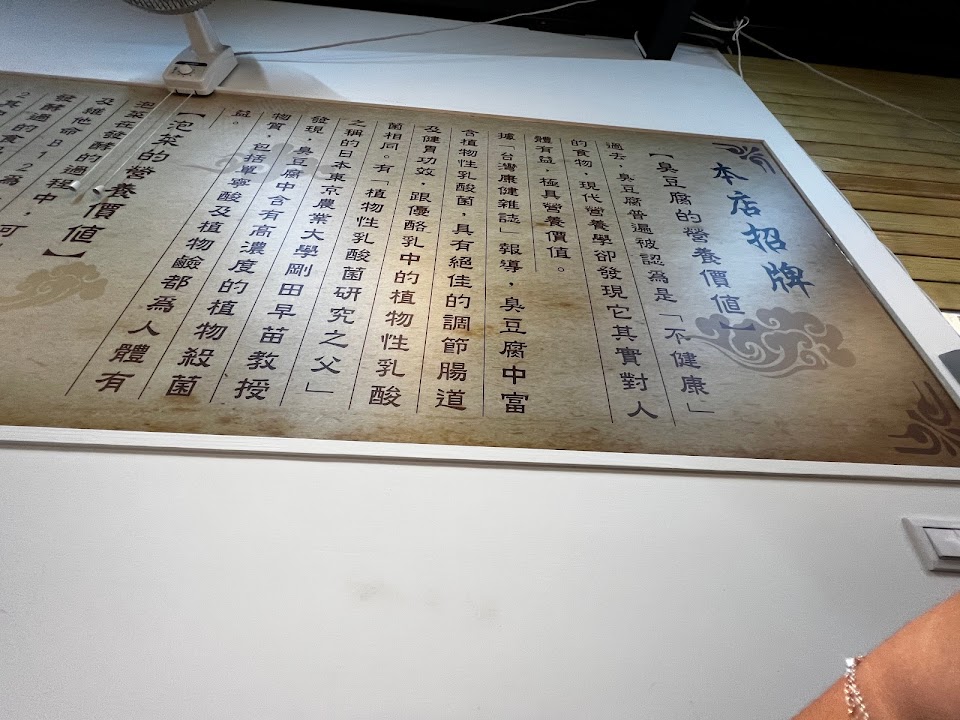 本店招牌
【臭豆腐的營養價值】
過去，臭豆腐普遍被認為是「不健康」
的食物，現代營養學卻發現它其實對人
體有益，極具營養價值。
據「台灣康健雜誌」報導，臭豆腐中富
含植物性乳酸菌，具有絕佳的調節腸道
及健胃功效，跟優酪乳中的植物性乳酸
菌相同。有「植物性乳酸菌研究之父」
之稱的日本東京農業大學剛田早苗教授
發現，臭豆腐中含有高濃度的植物殺菌
物質，包括單寧酸及植物鹼都為人體有
益。
【泡菜的營養價值】
泡菜在發酵的過程中，可
及維他命B12為
發酵過的食